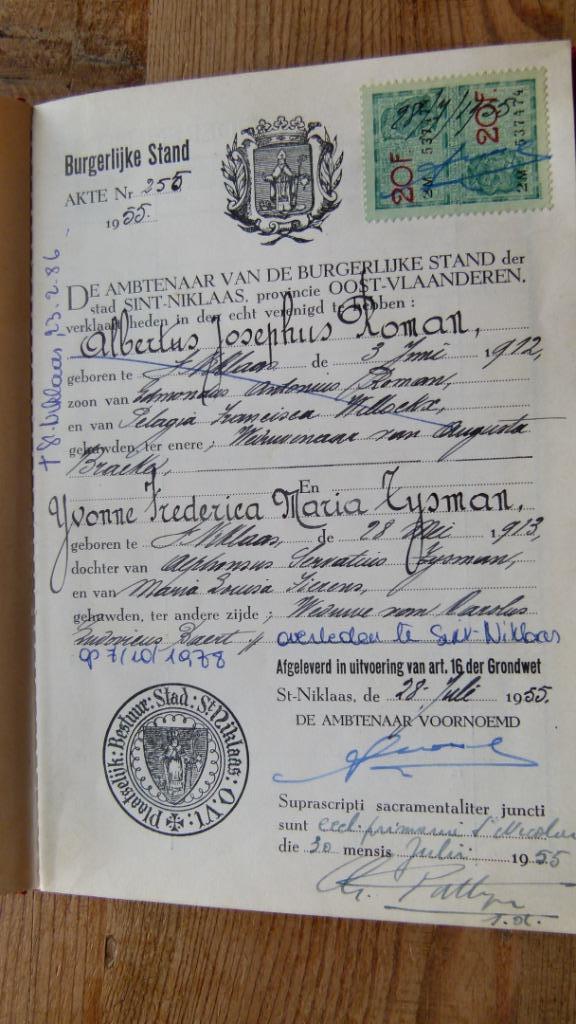 Burgerlijke Stand
AKTE Nr 255
1955.
28/7/1955
20F
2M 537174
20F
2M 537174
† S. Niklaas, 23.2.86
DE AMBTENAAR VAN DE BURGERLIJKE STAND der
stad SINT-NIKLAAS, provincie OOST-VLAANDEREN,
verklaart heden in den echt verenigd te hebben :
Albertus Josephus Roman,
geboren te St Niklaas de 3 Juni 1912,
zoon van Edmondus Antonius Roman,
en van Pelagia Francisca Willockx,
gehuwden, ter enere ; Weduwenaar van Augusta
Braeke,
En
Yvonne Frederica Maria Tysman,
geboren te St Niklaas, de 28 Mei 1913,
dochter van Alphonsus Servatius Tysman,
en van Maria Louisa Sierens,
gehuwden, ter andere zijde ; Weduwe van Carolus
Ludovicus Baert // overleden te Sint-Niklaas
op 7/10/1978
Afgeleverd in uitvoering van art. 16 der Grondwet
St-Niklaas, de 28 Juli 1955.
DE AMBTENAAR VOORNOEMD
Plaatselijk: Bestuur: Stad: St Niklaas: O. VL:
Suprascripti sacramentaliter juncti
sunt eccl. primaria S. Nicolai
die 30 mensis Julii 1955